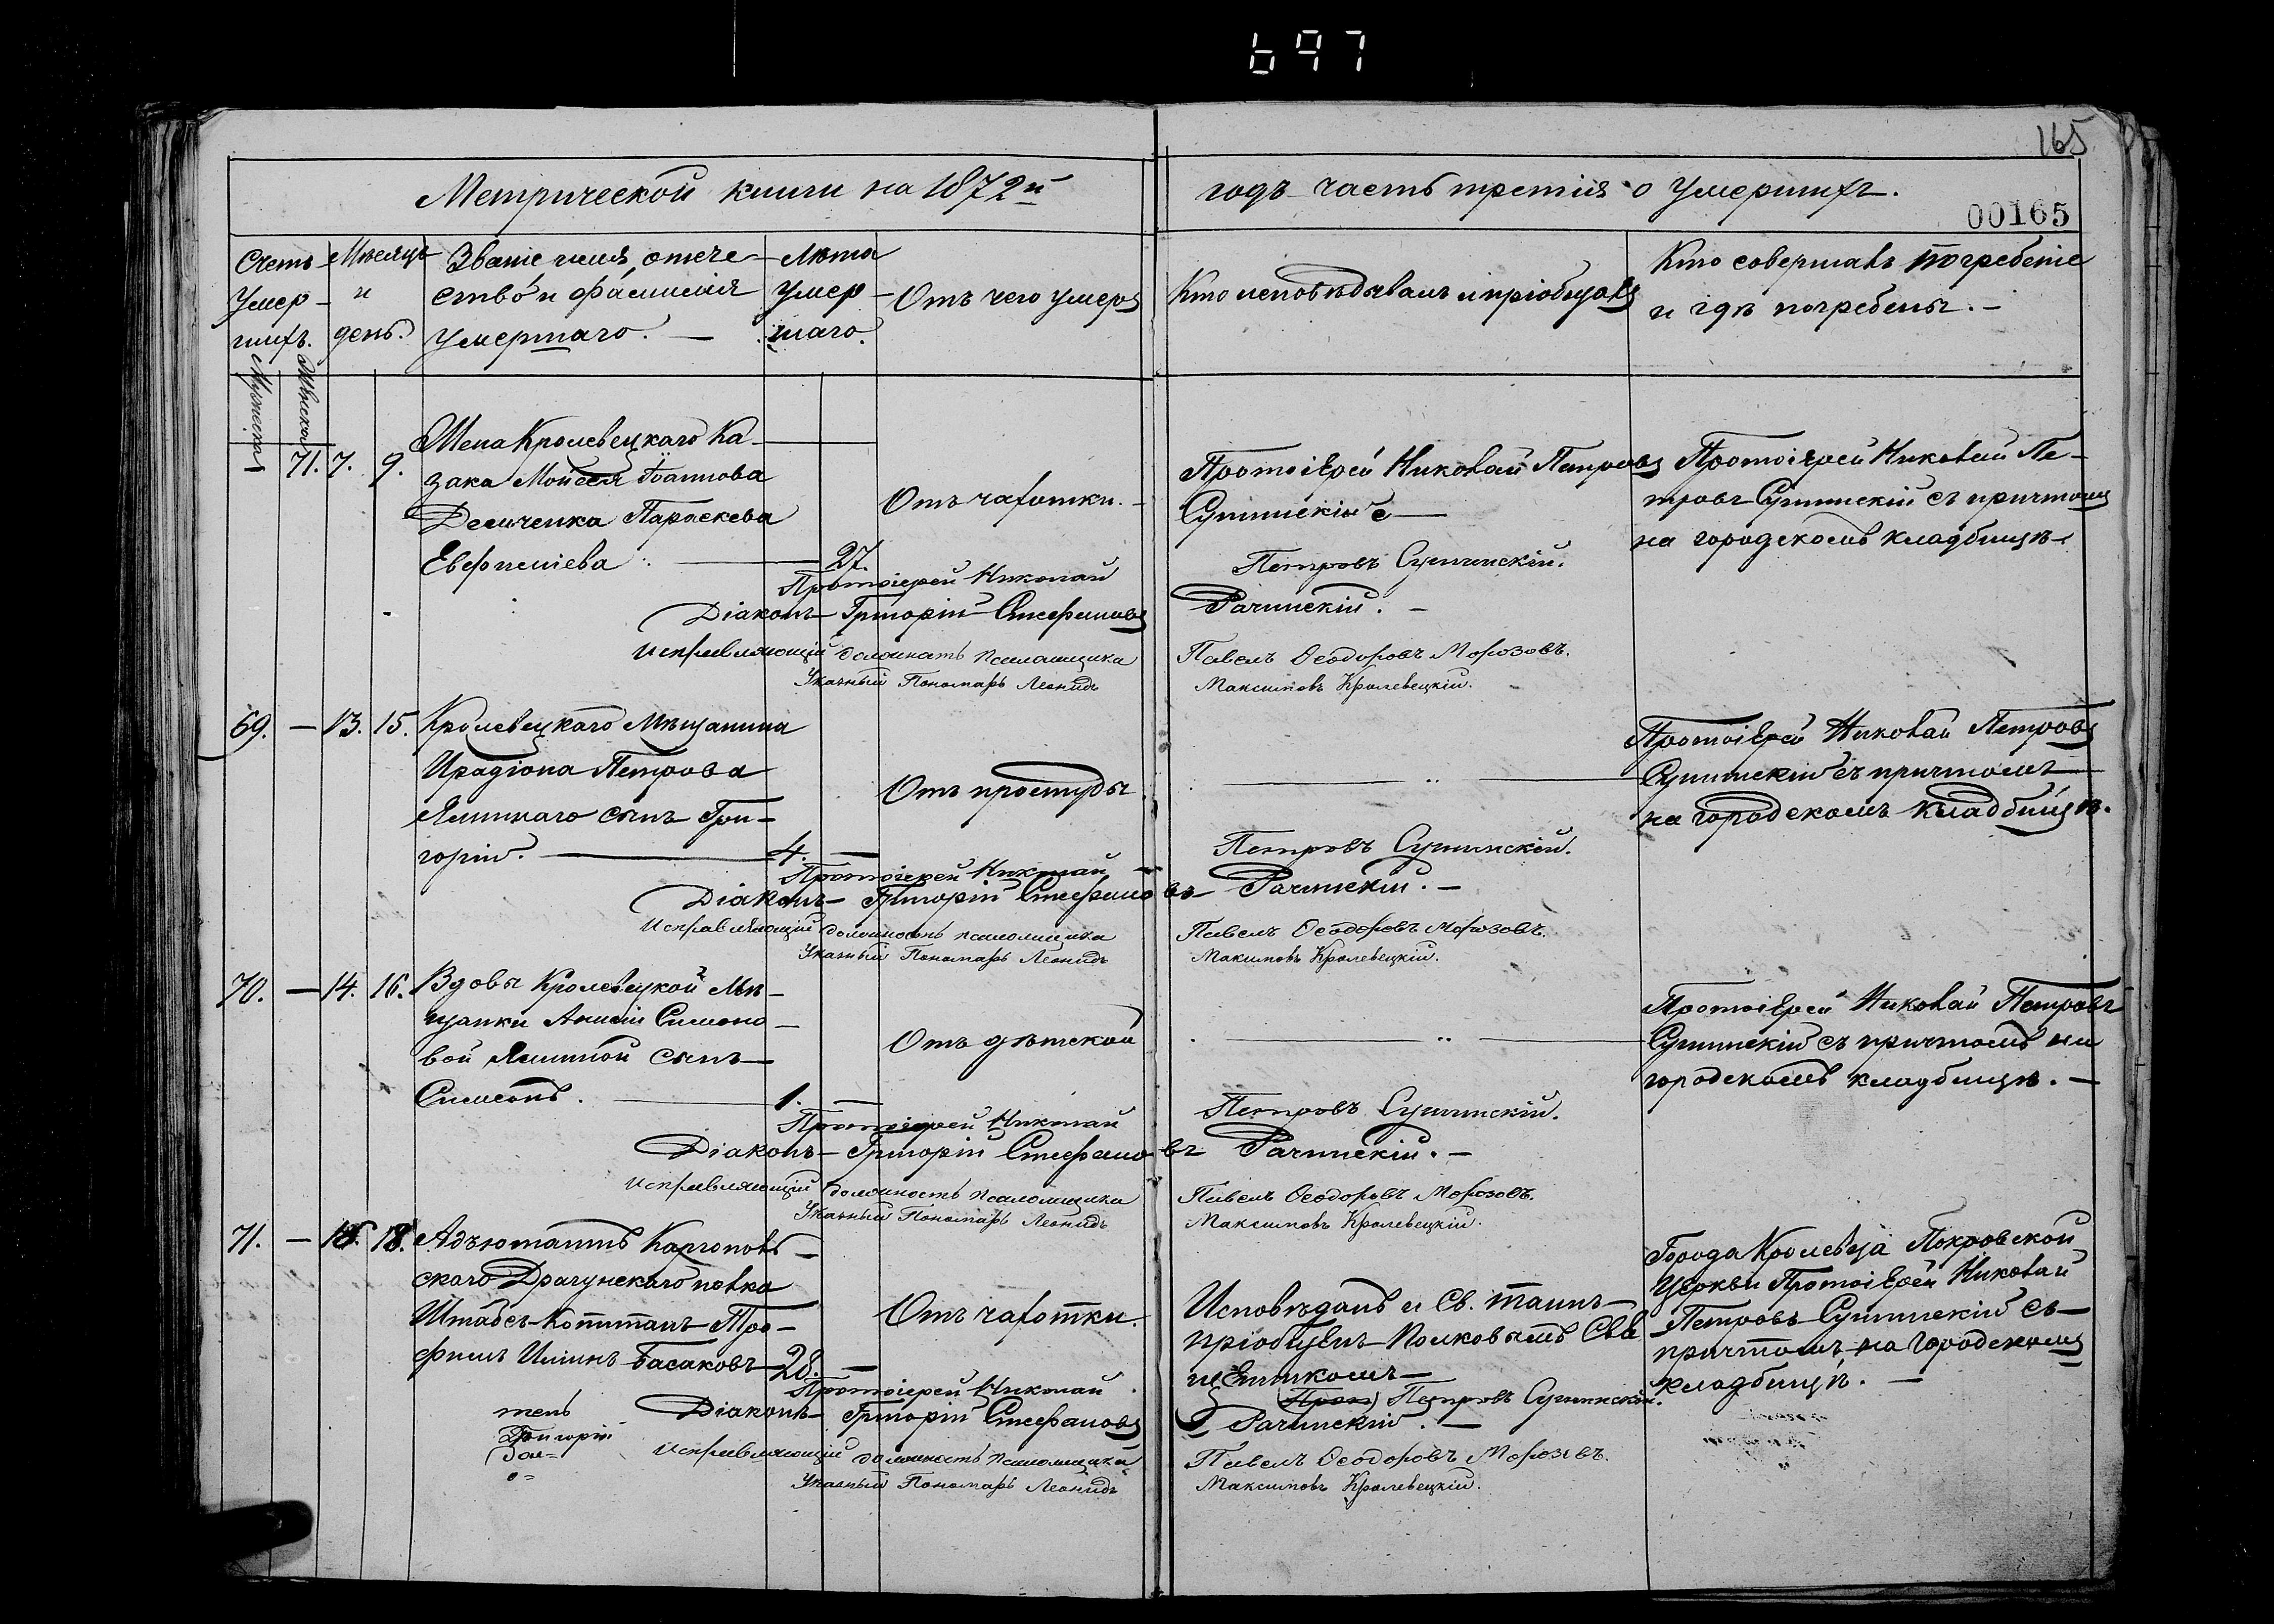 697
165
Метрической книги на 1872й годъ часть третія о умершихъ.
00165
Счетъ умер-шихъ.
Мужеска
Женска
Мѣсяцъ и день.
Званіе имя, отече-
ство и фамилія
умершаго. —
Лѣта
умер-
шаго.
Отъ чего умеръ
Кто исповѣдывалъ и пріобщалъ
Кто совершалъ погребеніе
и гдѣ погребены. —
71. 7. 9.
Жена Кролевецкаго Ка-
зака Мойсея Іоаннова
Десиченка Параскева
Евфиміева 27.
Отъ чахотки. —
Протоіерей Николай Петровъ
Сушинскій
Протоіерей Николай Пе-
тровъ Сушинскій съ причтомъ
на городскомъ кладбищѣ.
Протоіерей Николай Петровъ Сушинскій.
Діаконъ Григорій Стефановъ Рачинскій. —
Исправляющій должность псаломщика Павелъ Ѳеодоровъ Морозовъ.
Указный Пономарь Леонидъ Максимовъ Кролевецкій.
69. — 13. 15.
Кролевецкаго Мѣщанина
Иродіона Петрова
Ямнаго сынъ Гри-
горій. 4. —
Отъ простуды
— „ —
Протоіерей Николай Петровъ
Сушинскій съ причтомъ
на городскомъ кладбищѣ.
Протоіерей Николай Петровъ Сушинскій.
Діаконъ Григорій Стефановъ Рачинскій. —
Исправляющій должность псаломщика Павелъ Ѳеодоровъ Морозовъ.
Указный Пономарь Леонидъ Максимовъ Кролевецкій.
70. — 14. 16.
Вдовы Кролевецкой Мѣ-
щанки Анисіи Симоно-
вой Ямной сынъ
Симеонъ. 1. —
Отъ дѣтской
— „ —
Протоіерей Николай Петровъ
Сушинскій съ причтомъ на
городскомъ кладбищѣ. —
Протоіерей Николай Петровъ Сушинскій.
Діаконъ Григорій Стефановъ Рачинскій. —
Исправляющій должность псаломщика Павелъ Ѳеодоровъ Морозовъ.
Указный Пономарь Леонидъ Максимовъ Кролевецкій.
71. — 16. 18.
Адъютантъ Каргополь-
скаго Драгунскаго полка
Штабсъ-Капитанъ Тро-
фимъ Ильинъ Басаковъ 28. —
Отъ чахотки.
Исповѣданъ и Св. таинъ
пріобщенъ Полковымъ Свя
щенникомъ
Города Кролевца Покровской
Церкви Протоіерей Николай
Петровъ Сушинскій съ
причтомъ на городскомъ
кладбищѣ. —
Протоіерей Николай Петровъ Сушинскій.
Діаконъ Григорій Стефановъ Рачинскій. —
Исправляющій должность псаломщика Павелъ Ѳеодоровъ Морозовъ.
Указный Пономарь Леонидъ Максимовъ Кролевецкій.
тень
Григорій